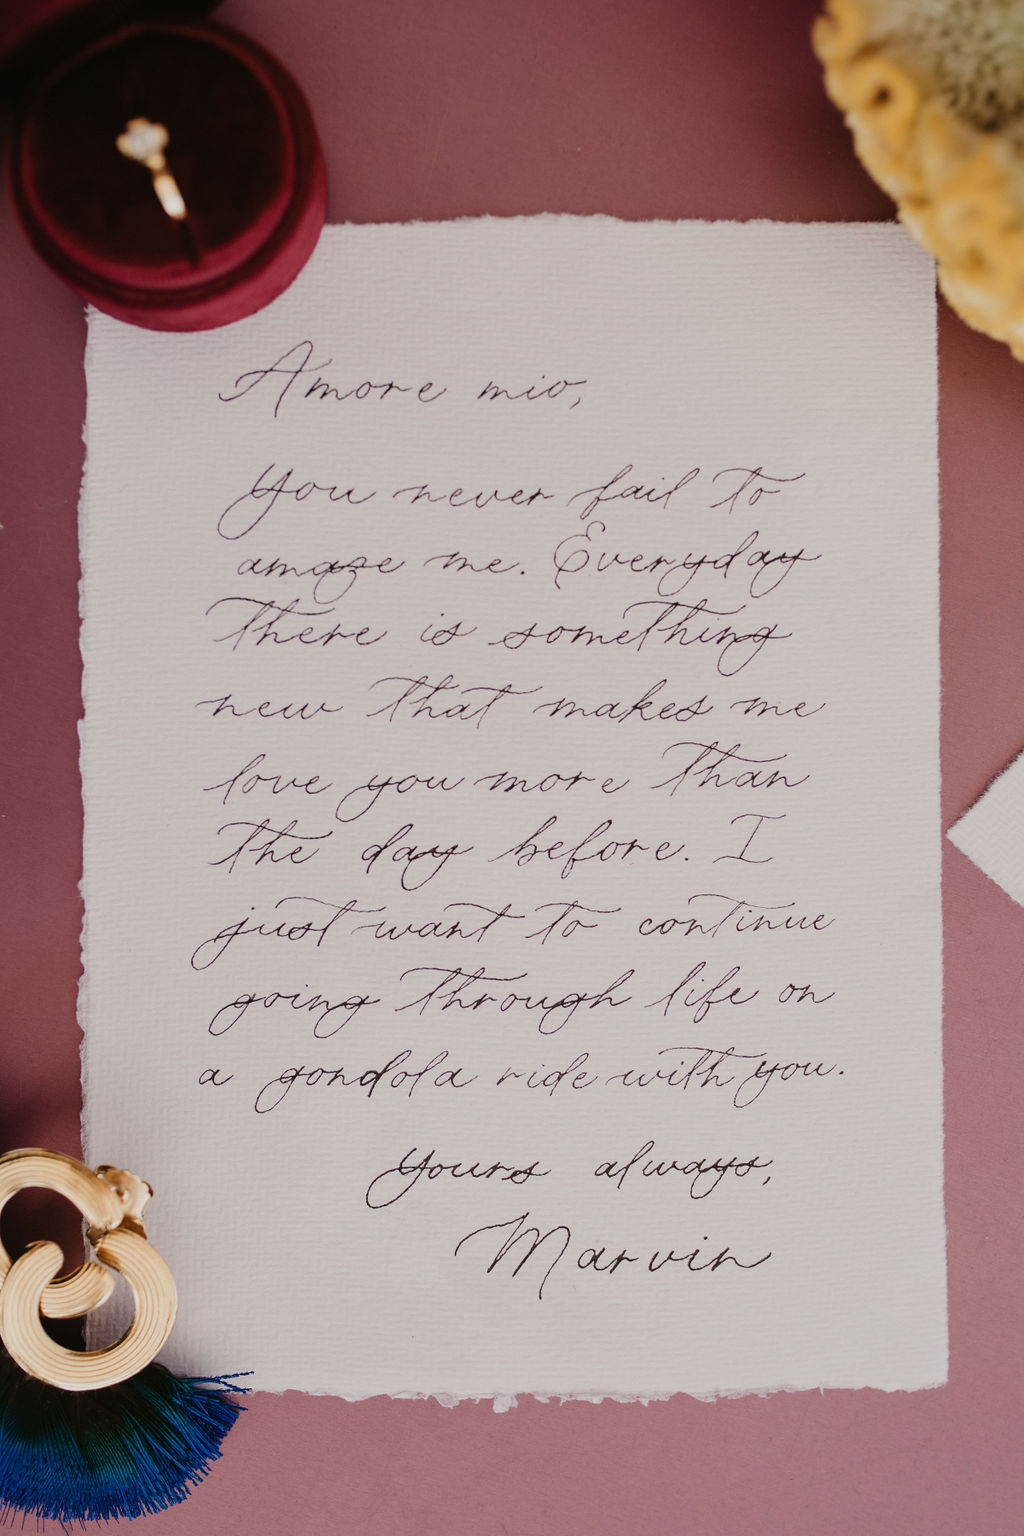 Amore mio,
You never fail to
amaze me. Everyday
there is something
new that makes me
love you more than
the day before. I
just want to continue
going through life on
a gondola ride with you.
yours always,
Marvin